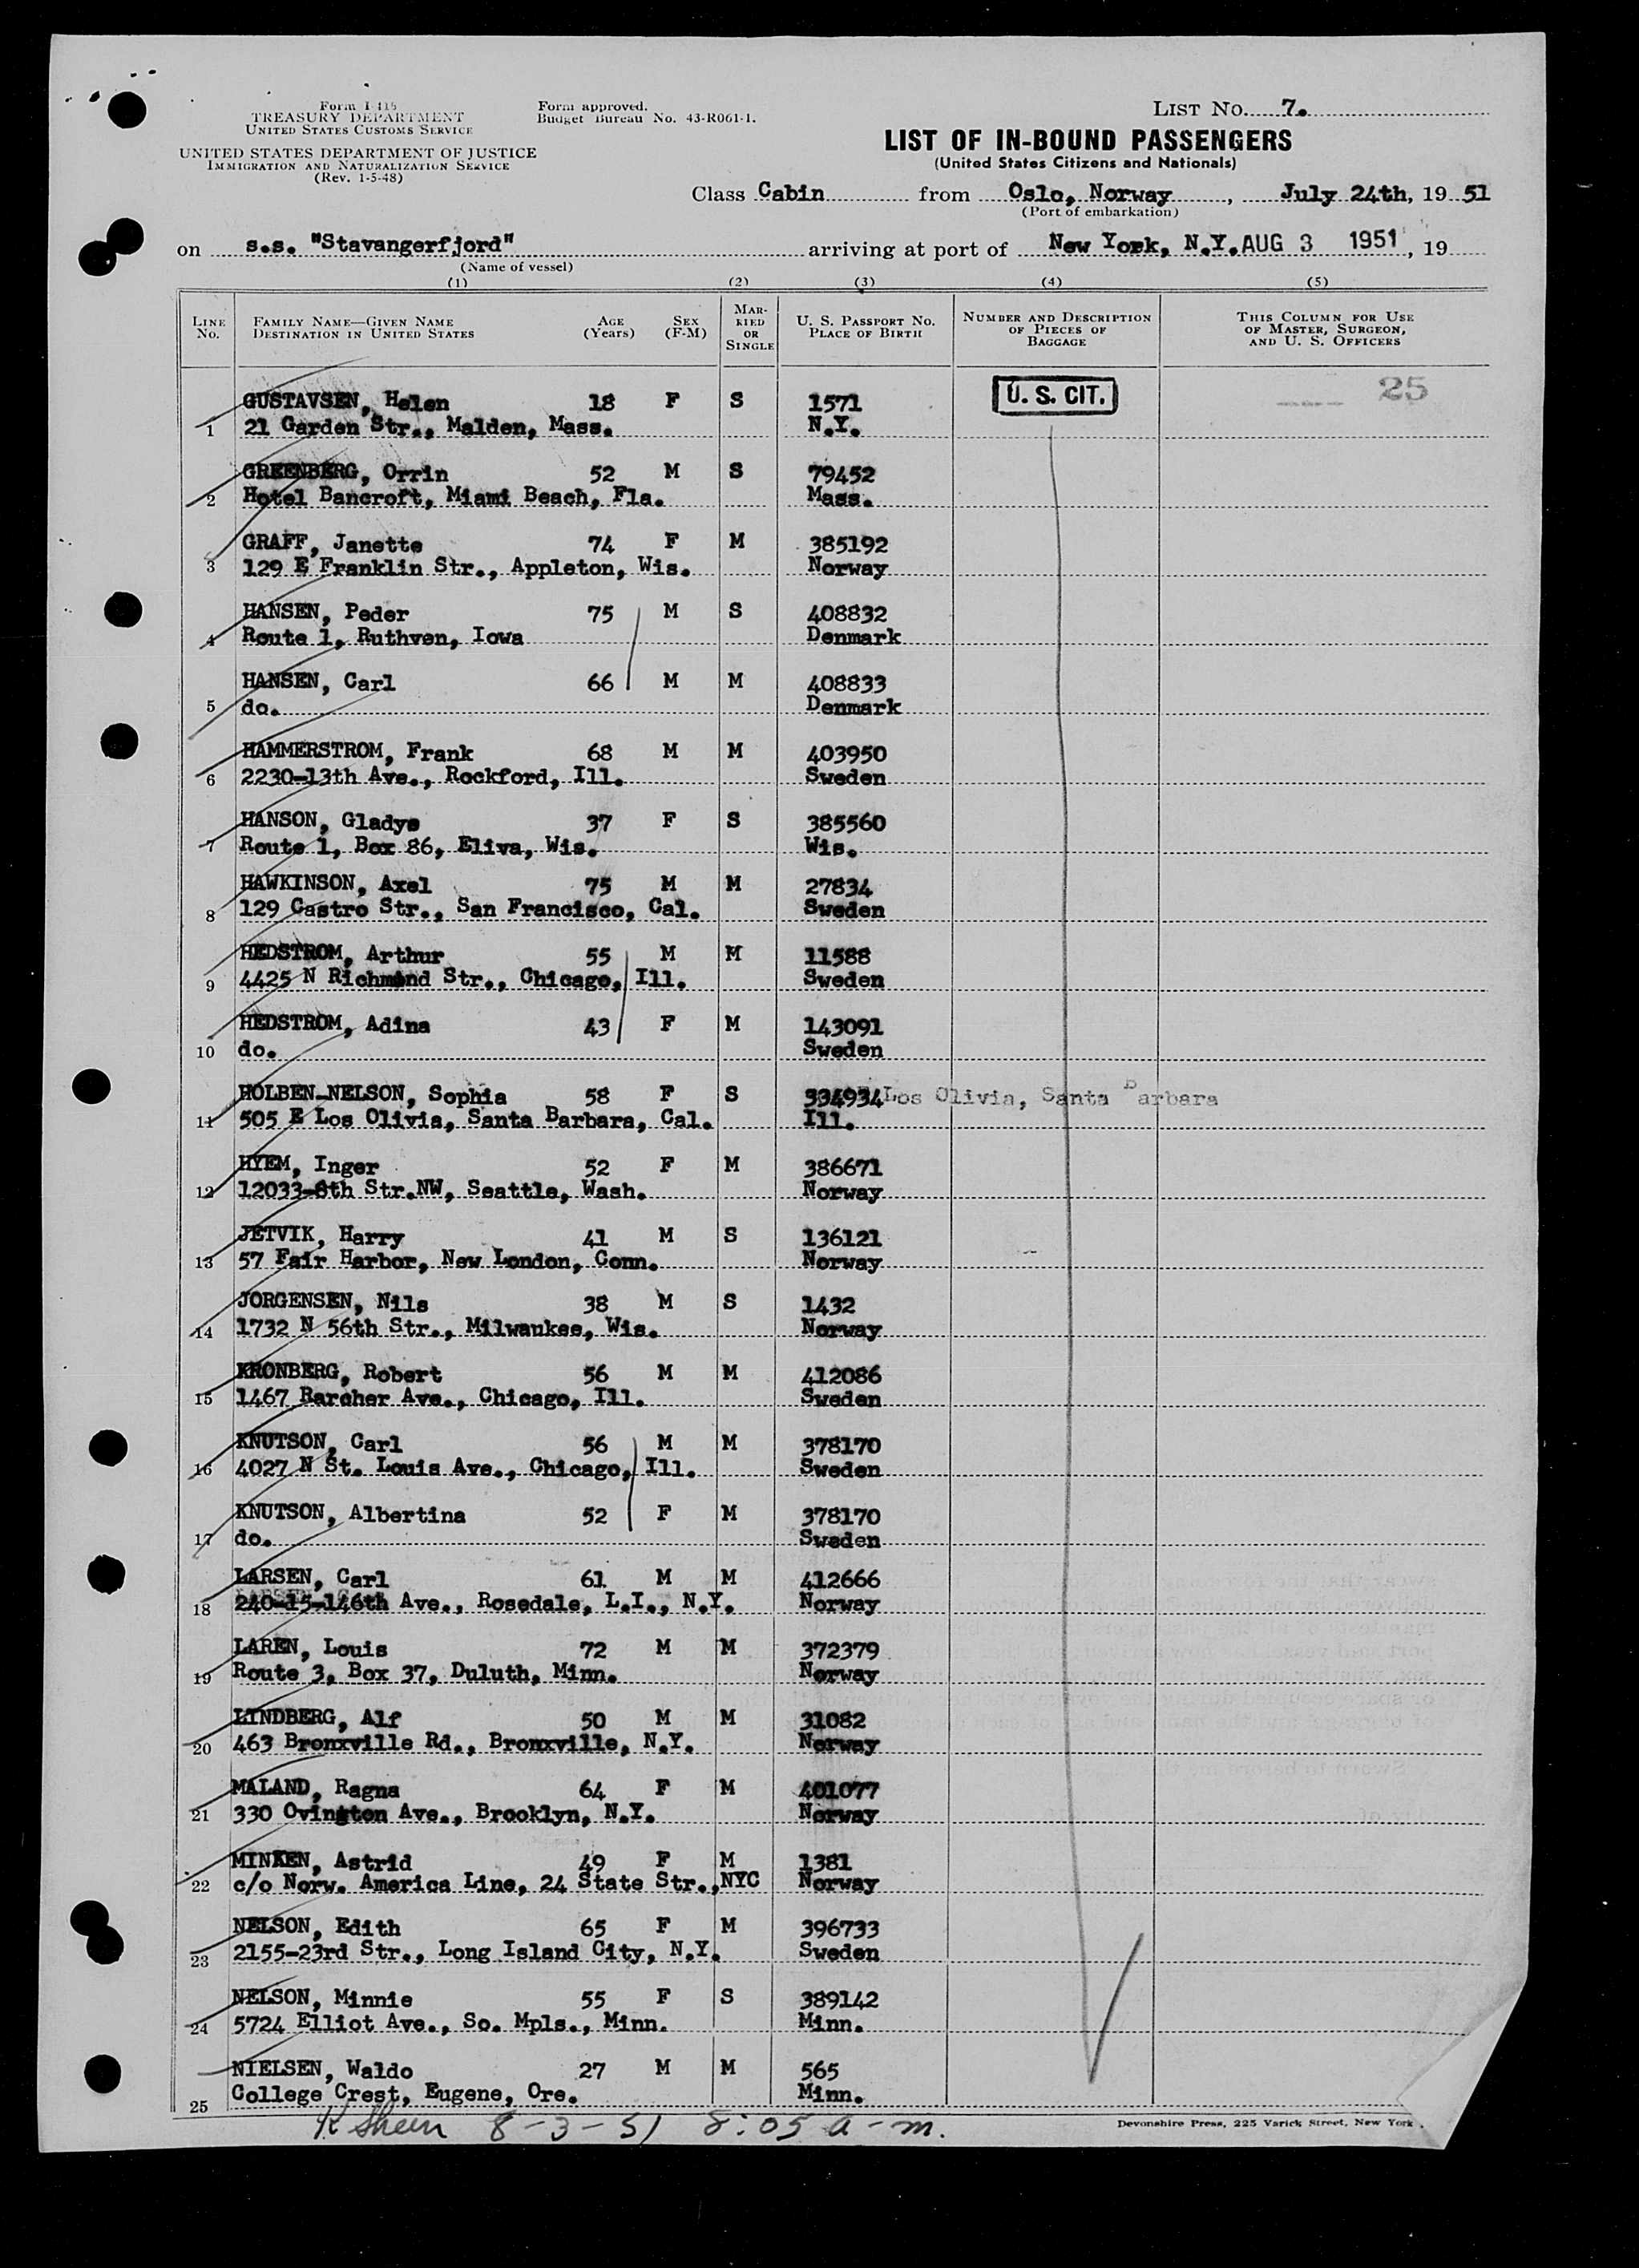 Form I 415
TREASURY DEPARTMENT
UNITED STATES CUSTOMS SERVICE
UNITED STATES DEPARTMENT OF JUSTICE
IMMIGRATION AND NATURALIZATION SERVICE
(Rev. 1-5-48)
Form approved.
Budget Bureau No. 43-R061-1.
LIST No. 7.
LIST OF IN-BOUND PASSENGERS
(United States Citizens and Nationals)
Class Cabin from Oslo, Norway, July 24th, 19 51
(Port of embarkation)
on s.s. "Stavangerfjord" arriving at port of New York, N.Y. AUG 3 1951, 19
(Name of vessel)
(1) (2) (3) (4) (5)
LINE No. FAMILY NAME—GIVEN NAME DESTINATION IN UNITED STATES AGE (Years) SEX (F-M) MARRIED OR SINGLE U. S. PASSPORT No. PLACE OF BIRTH NUMBER AND DESCRIPTION OF PIECES OF BAGGAGE THIS COLUMN FOR USE OF MASTER, SURGEON, AND U. S. OFFICERS
GUSTAVSEN, Helen 18 F S 1571 U. S. CIT. 25
1 21 Garden Str., Malden, Mass. N.Y.
GREENBERG, Orrin 52 M S 79452
2 Hotel Bancroft, Miami Beach, Fla. Mass.
GRAFF, Janette 74 F M 385192
3 129 E Franklin Str., Appleton, Wis. Norway
HANSEN, Peder 75 M S 408832
4 Route 1, Ruthven, Iowa Denmark
HANSEN, Carl 66 M M 408833
5 do. Denmark
HAMMERSTROM, Frank 68 M M 403950
6 2230-13th Ave., Rockford, Ill. Sweden
HANSON, Gladys 37 F S 385560
7 Route 1, Box 86, Eliva, Wis. Wis.
HAWKINSON, Axel 75 M M 27834
8 129 Castro Str., San Francisco, Cal. Sweden
HEDSTROM, Arthur 55 M M 11588
9 4425 N Richmond Str., Chicago, Ill. Sweden
HEDSTROM, Adina 43 F M 143091
10 do. Sweden
HOLBEN-NELSON, Sophia 58 F S 334934 Los Olivia, Santa Barbara
11 505 E Los Olivia, Santa Barbara, Cal. Ill.
HYEM, Inger 52 F M 386671
12 12033-8th Str.NW, Seattle, Wash. Norway
JETVIK, Harry 41 M S 136121
13 57 Fair Harbor, New London, Conn. Norway
JORGENSEN, Nils 38 M S 1432
14 1732 N 56th Str., Milwaukee, Wis. Norway
KRONBERG, Robert 56 M M 412086
15 1467 Barcher Ave., Chicago, Ill. Sweden
KNUTSON, Carl 56 M M 378170
16 4027 N St. Louis Ave., Chicago, Ill. Sweden
KNUTSON, Albertina 52 F M 378170
17 do. Sweden
LARSEN, Carl 61 M M 412666
18 240-15-146th Ave., Rosedale, L.I., N.Y. Norway
LAREN, Louis 72 M M 372379
19 Route 3, Box 37, Duluth, Minn. Norway
LINDBERG, Alf 50 M M 31082
20 463 Bronxville Rd., Bronxville, N.Y. Norway
MALAND, Ragna 64 F M 401077
21 330 Ovington Ave., Brooklyn, N.Y. Norway
MINKEN, Astrid 49 F M 1381
22 c/o Norw. America Line, 24 State Str., NYC Norway
NELSON, Edith 65 F M 396733
23 2155-23rd Str., Long Island City, N.Y. Sweden
NELSON, Minnie 55 F S 389142
24 5724 Elliot Ave., So. Mpls., Minn. Minn.
NIELSEN, Waldo 27 M M 565
25 College Crest, Eugene, Ore. Minn.
K Sheen 8-3-51 8:05 a-m.
Devonshire Press, 225 Varick Street, New York.